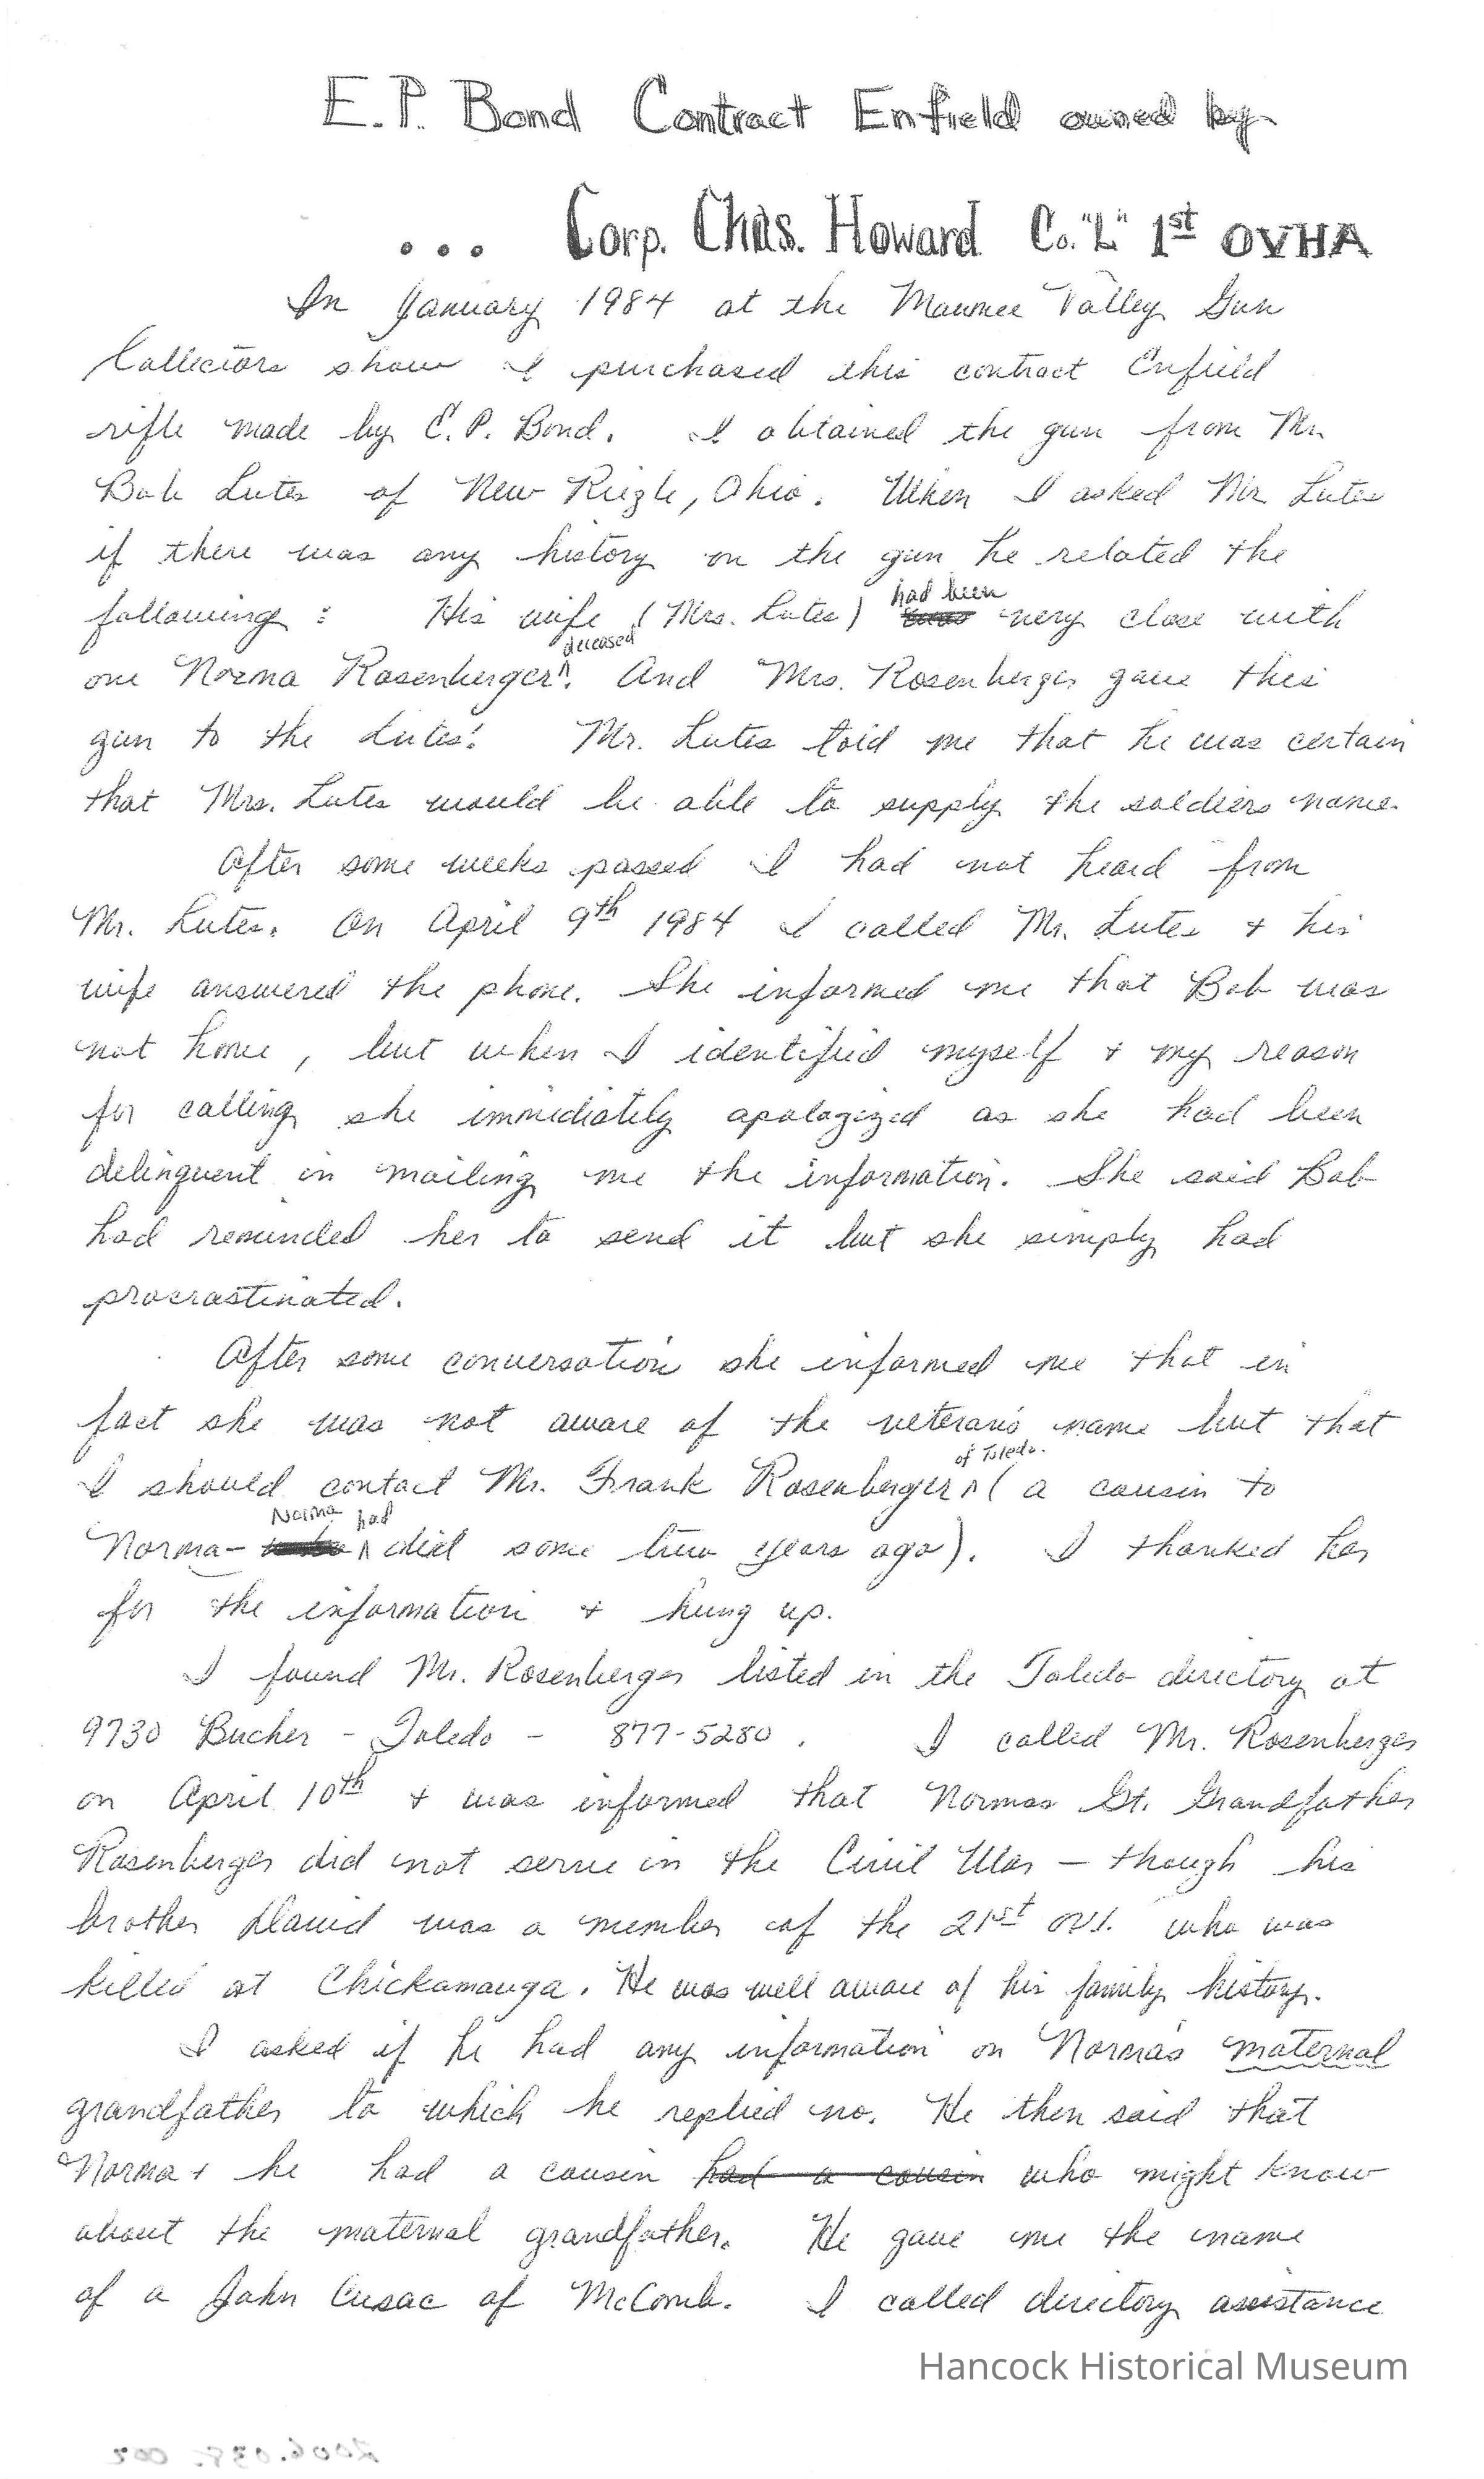 E.P. Bond Contract Enfield owned by
... Corp. Chas. Howard Co. "L" 1st OVHA
In January 1984 at the Maumee Valley Gun
Collectors show I purchased this contract Enfield
rifle made by E.P. Bond. I obtained the gun from Mr.
Bob Lutes of New Riegle, Ohio. When I asked Mr Lutes
if there was any history on the gun he related the
had been
following : His wife (Mrs. Lutes) was very close with
deceased
one Norma Rosenberger^. And Mrs. Rosenberger gave this
gun to the Lutes'. Mr. Lutes told me that he was certain
that Mrs. Lutes would be able to supply the soldiers name.
After some weeks passed I had not heard from
Mr. Lutes. On April 9th 1984 I called Mr. Lutes + his
wife answered the phone. She informed me that Bob was
not home, but when I identified myself + my reason
for calling she immediately apologized as she had been
delinquent in mailing me the information. She said Bob
had reminded her to send it but she simply had
procrastinated.
After some conversation she informed me that in
fact she was not aware of the veteran's name but that
of Toledo.
I should contact Mr. Frank Rosenberger ^ (a cousin to
Norma had
Norma- ^ died some two years ago). I thanked her
for the information + hung up.
I found Mr. Rosenberger listed in the Toledo directory at
9730 Bucher - Toledo - 877-5280. I called Mr. Rosenberger
on April 10th + was informed that Normas Gt. Grandfather
Rosenberger did not serve in the Civil War - though his
brother David was a member of the 21st OVI. who was
killed at Chickamauga. He was well aware of his family history.
I asked if he had any information on Norma's maternal
grandfather to which he replied no. He then said that
Norma + he had a cousin had a cousin who might know
about the maternal grandfather. He gave me the name
of a John Cusac of McComb. I called directory assistance
Hancock Historical Museum
2006.038.002